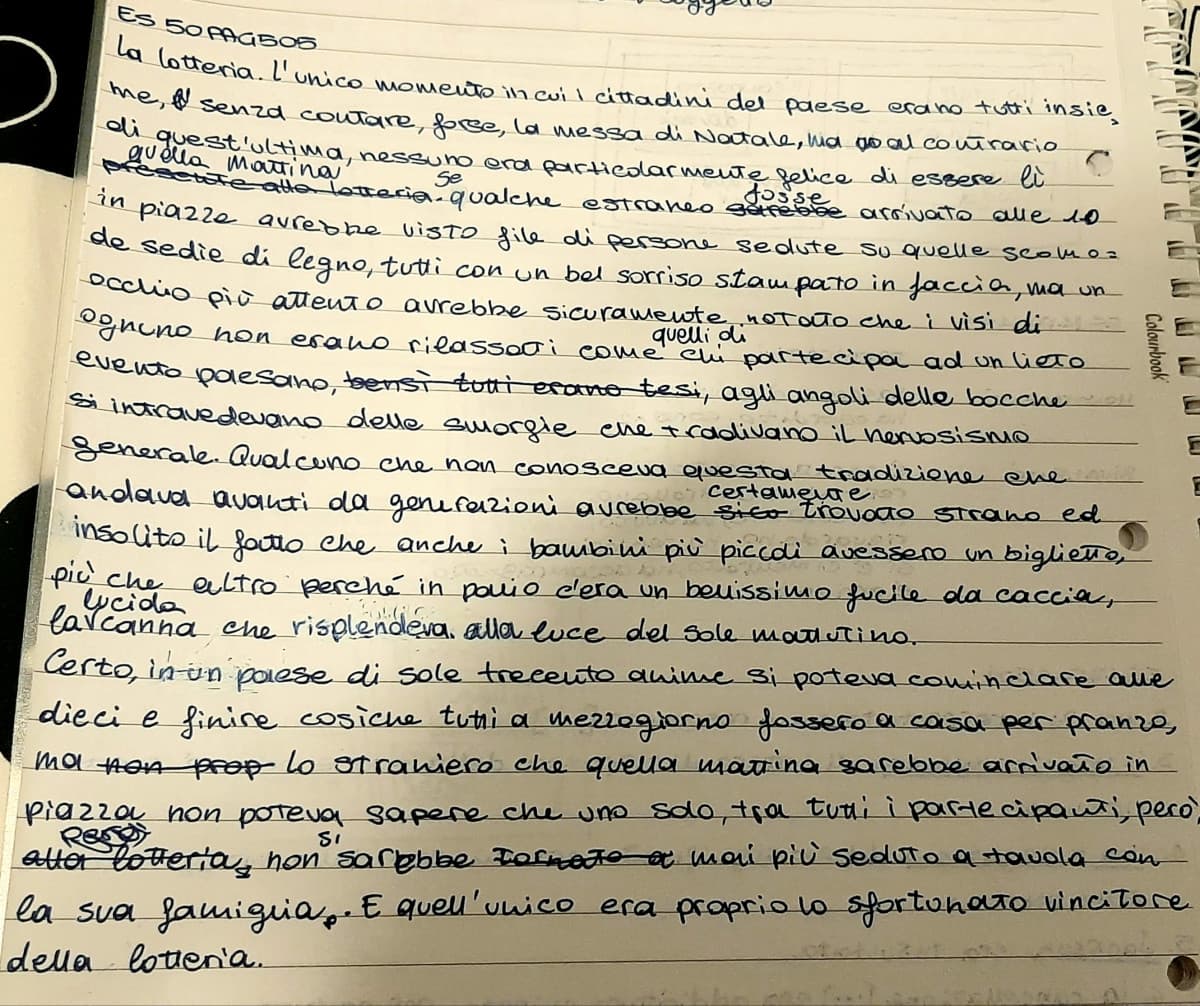 ES 50 PAG 505
La lotteria. L'unico momento in cui i cittadini del paese erano tutti insie
me, senza contare, forse, la messa di Natale, ma al contrario
di quest'ultima, nessuno era particolarmente felice di essere lì
quella mattina
presente alla lotteria. se qualche estraneo fosse sarebbe arrivato alle 10
in piazza avrebbe visto file di persone sedute su quelle scomo=
de sedie di legno, tutti con un bel sorriso stampato in faccia, ma un
occhio più attento avrebbe sicuramente notato che i visi di
ognuno non erano rilassati come quelli di chi partecipa ad un lieto
evento paesano, bensì tutti erano tesi, agli angoli delle bocche
si intravedevano delle smorgie che tradivano il nervosismo
generale. Qualcuno che non conosceva questa tradizione che
andava avanti da generazioni avrebbe certamente sico trovato strano ed
insolito il fatto che anche i bambini più piccoli avessero un biglietto,
più che altro perché in palio c'era un bellissimo fucile da caccia,
la lucida canna che risplendeva alla luce del sole mattutino.
Certo, in un paese di sole trecento anime si poteva cominciare alle
dieci e finire cosiche tutti a mezzogiorno fossero a casa per pranzo,
ma non prop lo straniero che quella mattina sarebbe arrivato in
piazza non poteva sapere che uno solo, tra tutti i partecipanti, però,
però
alla lotteria, non si sarebbe tornato a mai più seduto a tavola con
la sua famiglia. E quell'unico era proprio lo sfortunato vincitore
della lotteria.
Colourbook